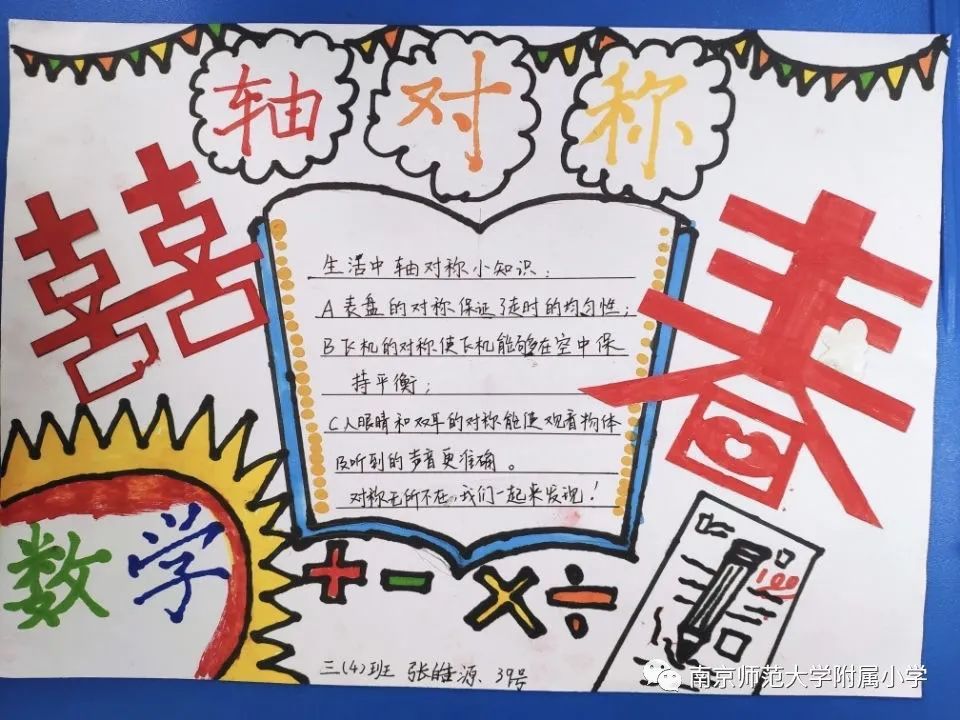 轴对称
囍
春
生活中轴对称小知识：
A表盘的对称保证了走时的均匀性；
B飞机的对称使飞机能够在空中保
持平衡；
C人眼睛和双耳的对称能使观看物体
及听到的声音更准确。
对称无所不在，我们一起来发现！
数学
+ - × ÷
100
三(4)班 张 源 39号
南京师范大学附属小学